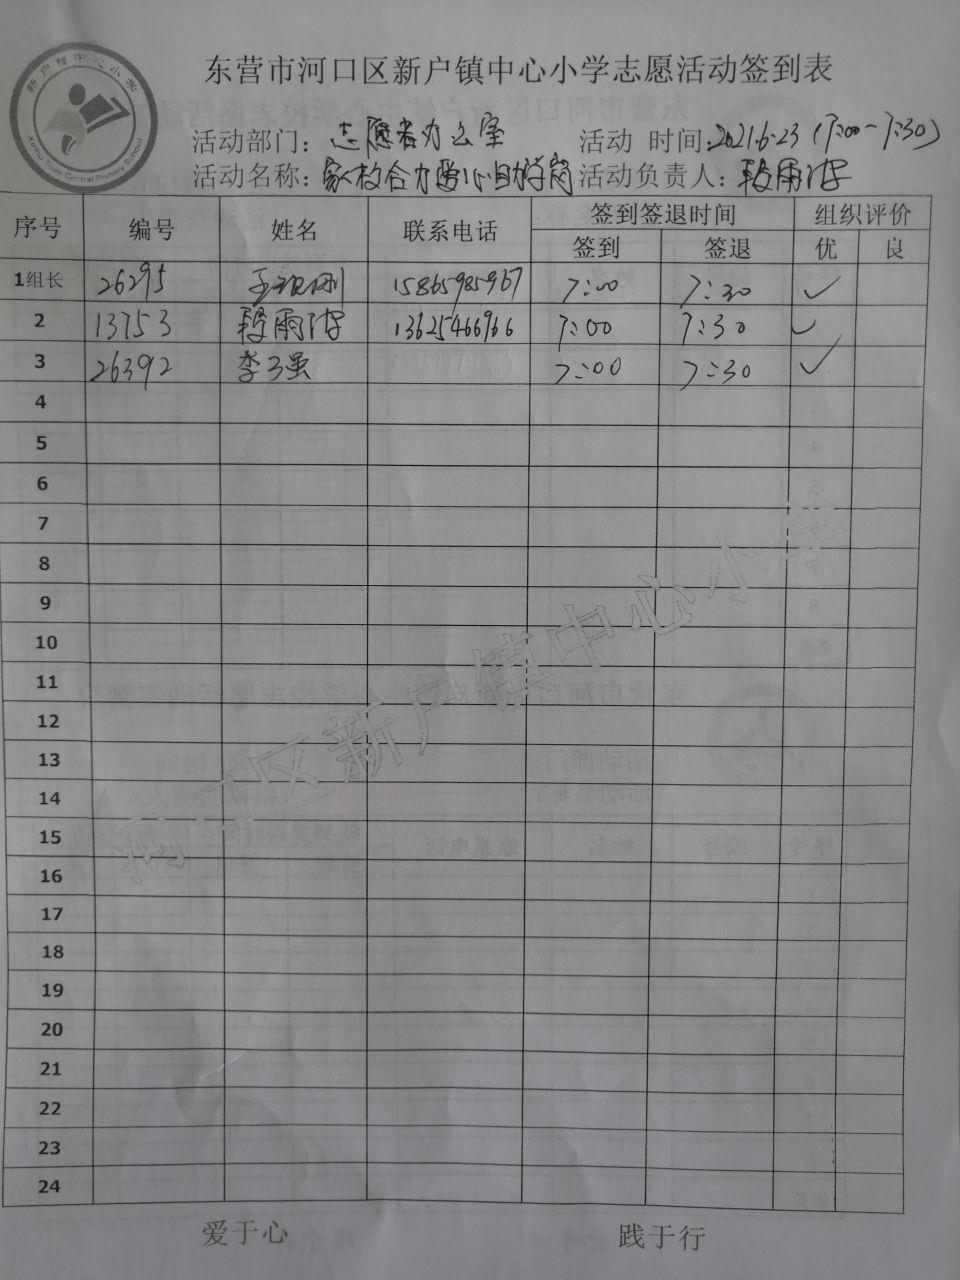 新户镇中心小学
Xinhu Town Central Primary School
东营市河口区新户镇中心小学志愿活动签到表
活动部门：志愿者办公室 活动 时间：2021.6.23（7:00-7:30）
活动名称：家校合力爱心助学岗 活动负责人：段雨
序号 编号 姓名 联系电话 签到签退时间 组织评价
签到 签退 优 良
1组长 26295 王 15865985967 7:00 7:30 ✓
2 13753 段雨 13625466966 7:00 7:30 ✓
3 26392 李子强 7:00 7:30 ✓
4
5
6
7
8
9
10
11
12
13
14
15
16
17
18
19
20
21
22
23
24
河口区新户镇中心小学
爱于心 践于行